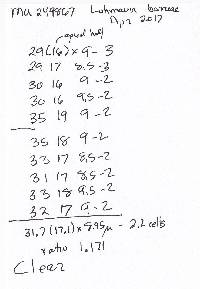 MU 249867 Lohmann
Apr 2017
apical half
29(16) x 9 - 3
29 17 8.5 - 3
30 16 9 - 2
30 16 9.5 - 2
35 19 9 - 2
35 18 9 - 2
33 17 8.5 - 2
31 17 8.5 - 2
33 18 9.5 - 2
32 17 9 - 2
31.7 (17.1) x 8.95 µ - 2.2 cells
ratio 1.171
Clear